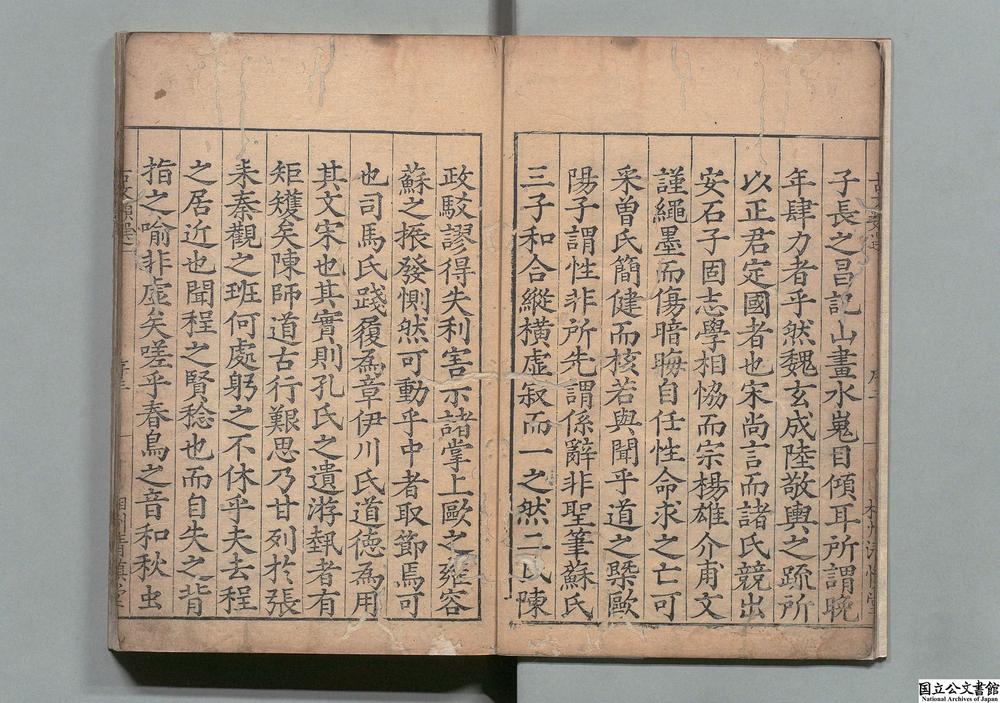 子長之昌記山畫水嵬目傾耳所謂晩
年肆力者乎然魏玄成陸敬輿之疏所
以正君定國者也宋尚言而諸氏競出
安石子固志學相恊而宗楊雄介甫文
謹繩墨而傷暗晦自任性命求之亡可
采曾氏簡健而核若與聞乎道之槩歐
陽子謂性非所先謂係辭非聖筆蘇氏
三子和合縱橫虛寂而一之然二氏陳
政駁謬得失利害示諸掌上歐之雍容
蘇之振發惻然可動乎中者取節焉可
也司馬氏踐履為章伊川氏道徳為用
其文宋也其實則孔氏之遺游埶者有
矩矱矣陳師道古行艱思乃甘列於張
耒秦觀之班何處躬之不休乎夫去程
之居近也聞程之賢稔也而自失之背
指之喻非虛矣嗟乎春鳥之音和秋虫
国立公文書館
National Archives of Japan